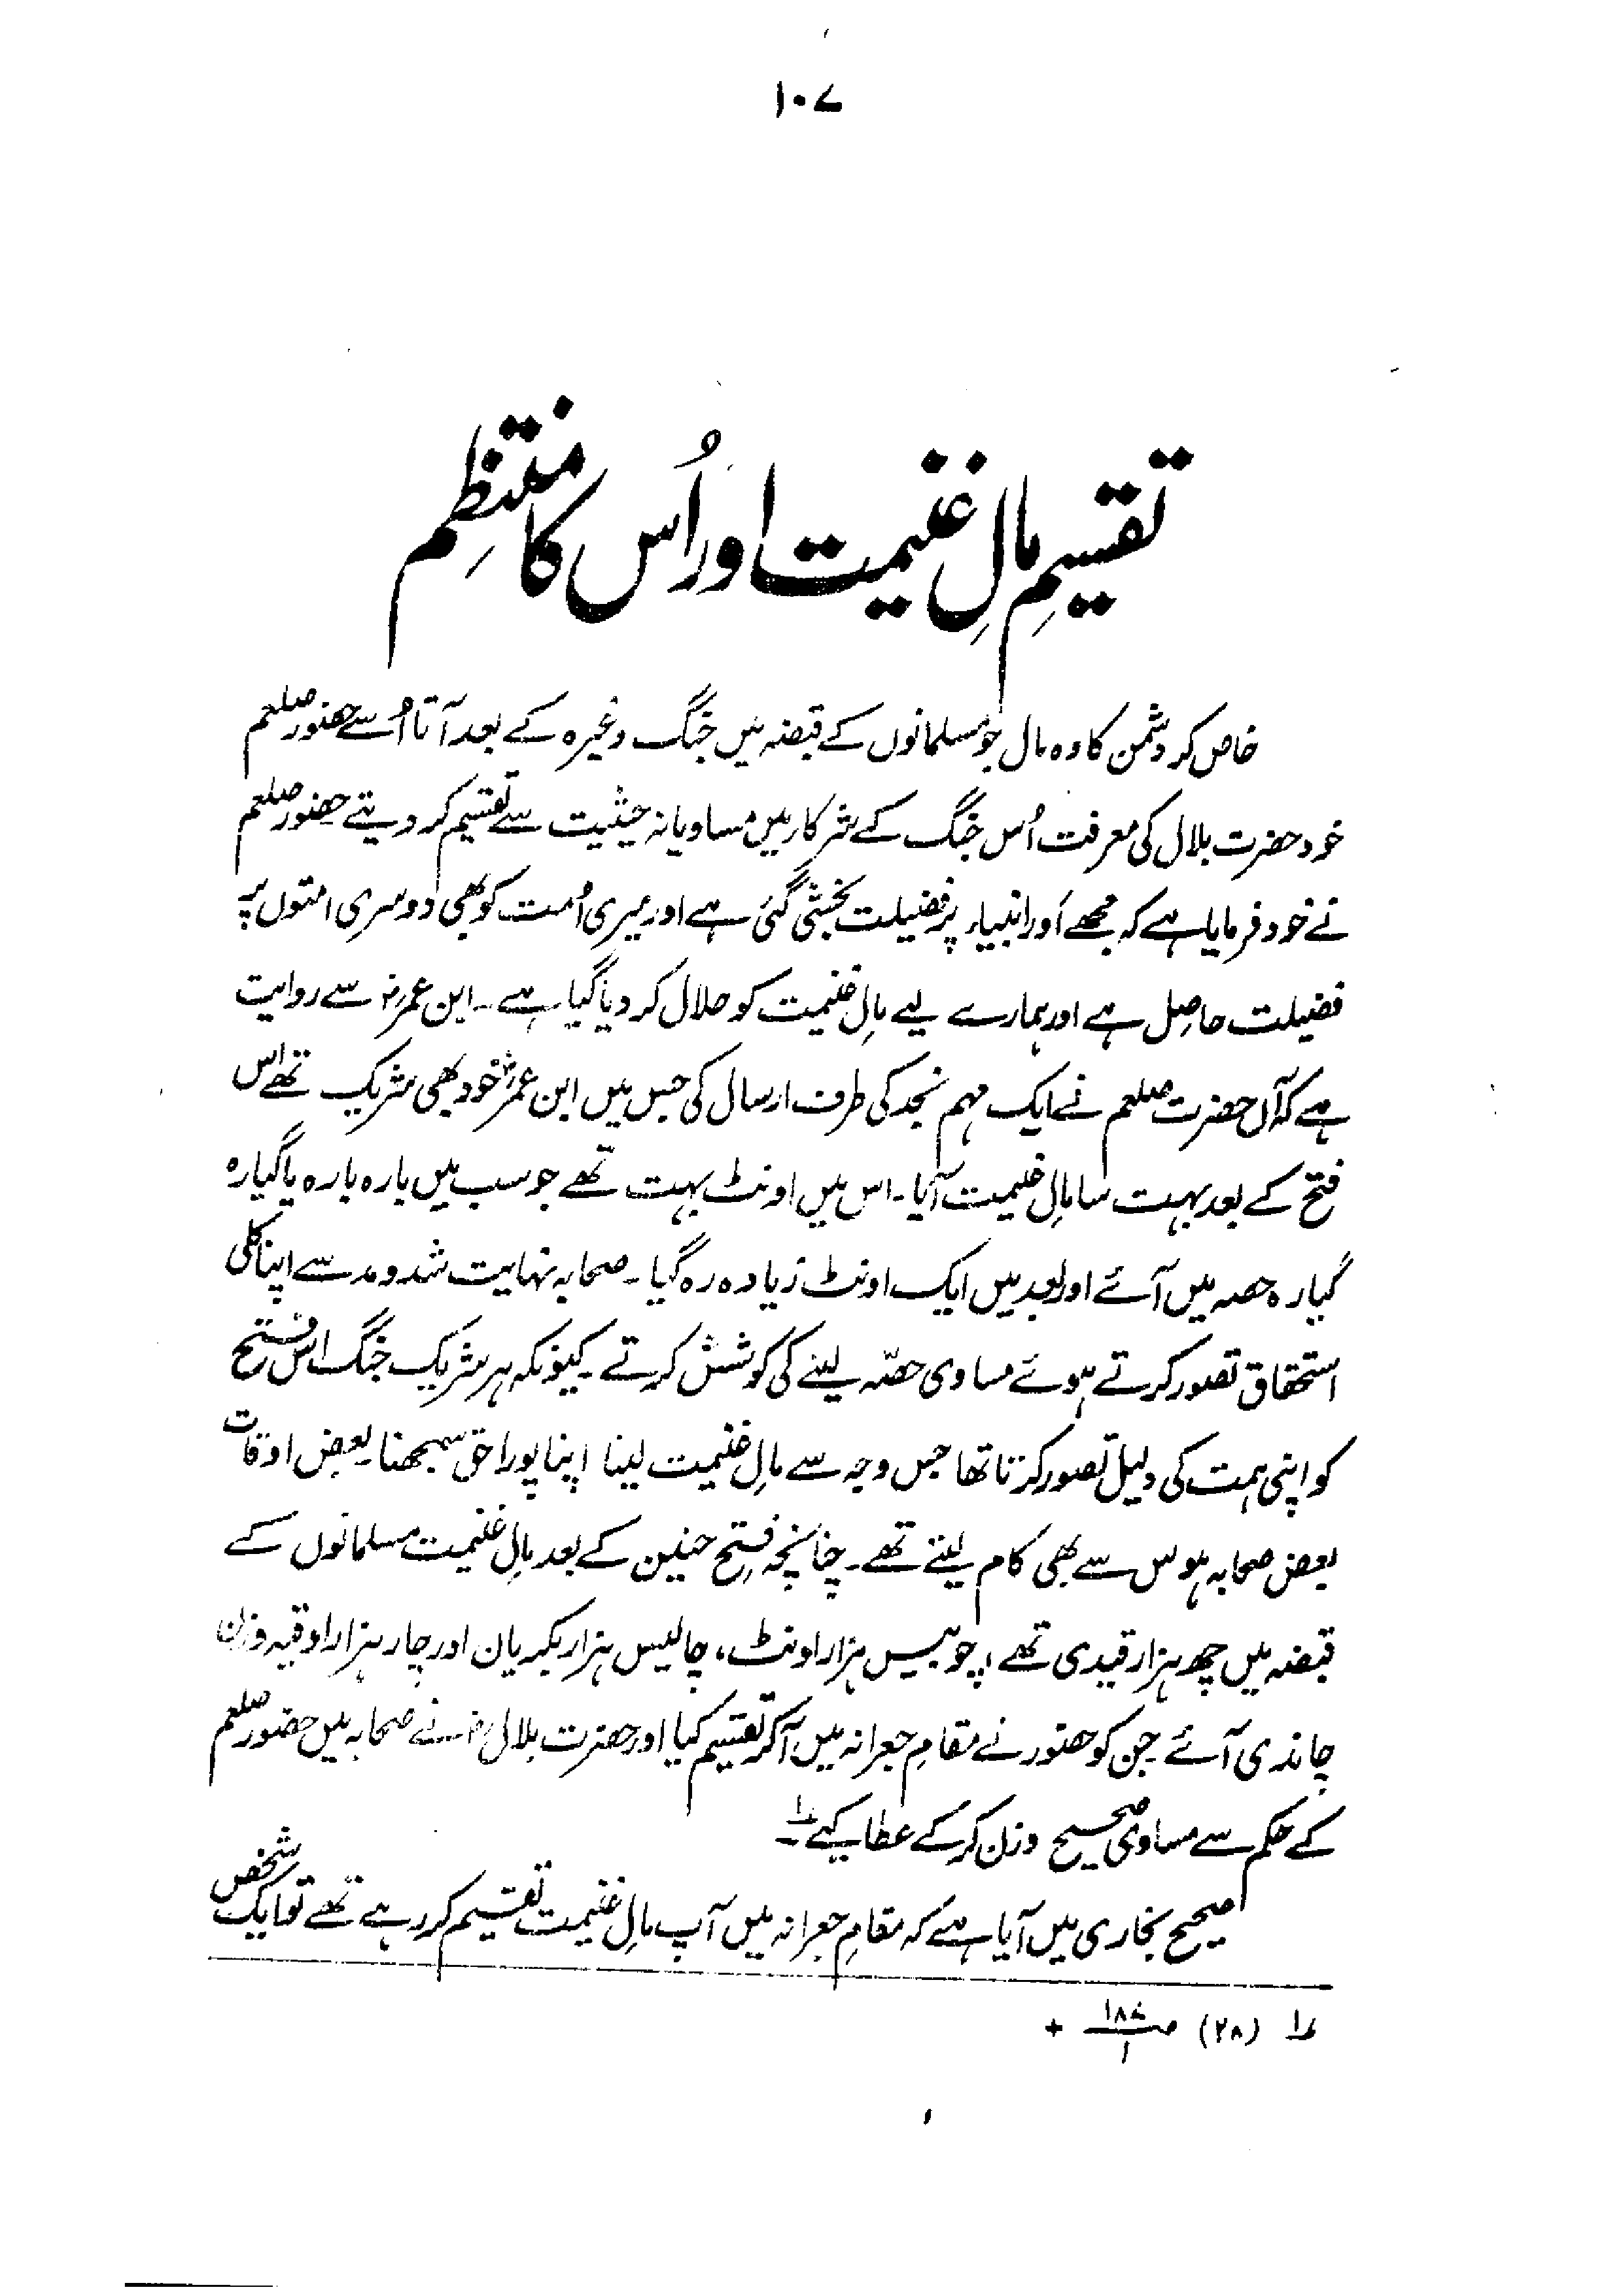 ۱۰۷
تقسیمِ مالِ غنیمت اور اُس کا منتظِم
خاص کر دشمن کا وہ مال جو مسلمانوں کے قبضہ میں جنگ وغیرہ کے بعد آتا اُسے حضور صلعم
خود حضرت بلال کی معرفت اُس جنگ کے شرکار میں مساویانہ حیثیت سے تقسیم کر دیتے حضور صلعم
نے خود فرمایا ہے کہ مجھے اَور انبیاء پر فضیلت بخشی گئی ہے اور میری اُمت کو بھی دوسری امتوں پہ
فضیلت حاصِل ہے اور ہمارے لیے مالِ غنیمت کو حلال کر دیا گیا ہے۔ ابن عمرؓ سے روایت
ہے کہ آں حضرت صلعم نے ایک مہم نجد کی طرف ارسال کی جس میں ابن عمرؓ خود بھی شریک تھے اس
فتح کے بعد بہت سا مالِ غنیمت آیا۔ اس میں اونٹ بہت تھے جو سب میں بارہ بارہ یا گیارہ
گیارہ حصہ میں آئے اور بعد میں ایک اونٹ زیادہ رہ گیا۔ صحابہ نہایت شد و مد سے اپنا کلی
استحقاق تصور کرتے ہوئے مساوی حصّہ لینے کی کوشش کرتے۔ کیونکہ ہر شریک جنگ اس فتح
کو اپنی ہمت کی دلیل تصور کرتا تھا جس وجہ سے مالِ غنیمت لینا اپنا پورا حق سمجھنا۔ بعض اوقات
بعض صحابہ ہوس سے بھی کام لیتے تھے۔ چنانچہ فتحِ حنین کے بعد مالِ غنیمت مسلمانوں کے
قبضہ میں چھ ہزار قیدی تھے، چوبیس ہزار اونٹ، چالیس ہزار بکریان اور چار ہزار اوقیہ وزن
چاندی آئے جن کو حضور نے مقامِ جعرانہ میں آکر تقسیم کیا اور حضرت بلالؓ نے صحابہ میں حضور صلعم
کے حکم سے مساوی صحیح وزن کرکے عطا کیے ؎۱۔
صحیح بخاری میں آیا ہے کہ مقامِ جعرانہ میں آپ مالِ غنیمت تقسیم کر رہے تھے تو ایک شخص
؎۱ (۲۸) صـ ۱۸۷/۱ +